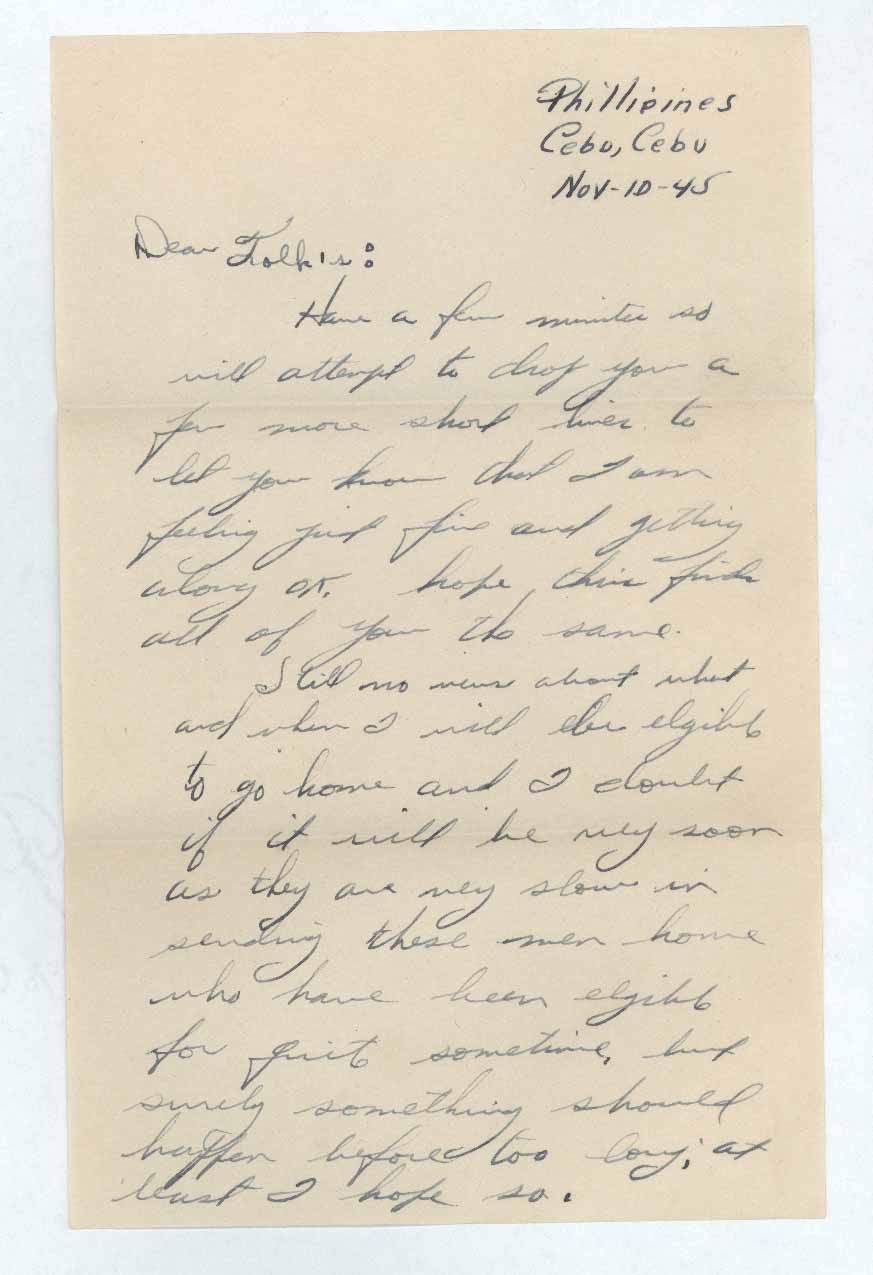 Phillipines
Cebu, Cebu
Nov-10-45
Dear Folk's:
Have a few minutes so
will attempt to drop you a
few more short lines to
let you know that I am
feeling just fine and getting
along OK. hope this finds
all of you the same.
Still no news about what
and when I will be elgible
to go home and I doubt
if it will be very soon
as they are very slow in
sending these men home
who have been elgible
for quite sometime, but
surely something should
happen before too long, at
least I hope so.